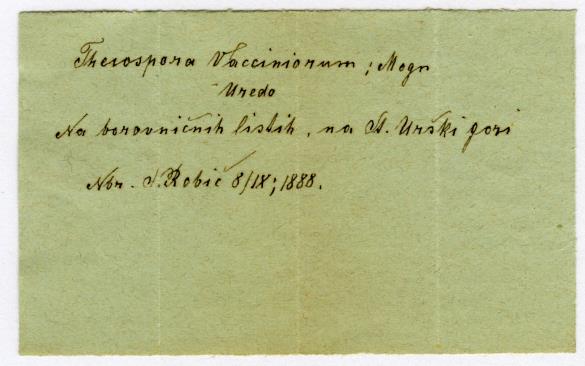 Thecospora Vacciniorum ; Magn
Uredo
Na borovničnih listih, na St. Urški gori
Nbr. S. Robič 8/IX; 1888.